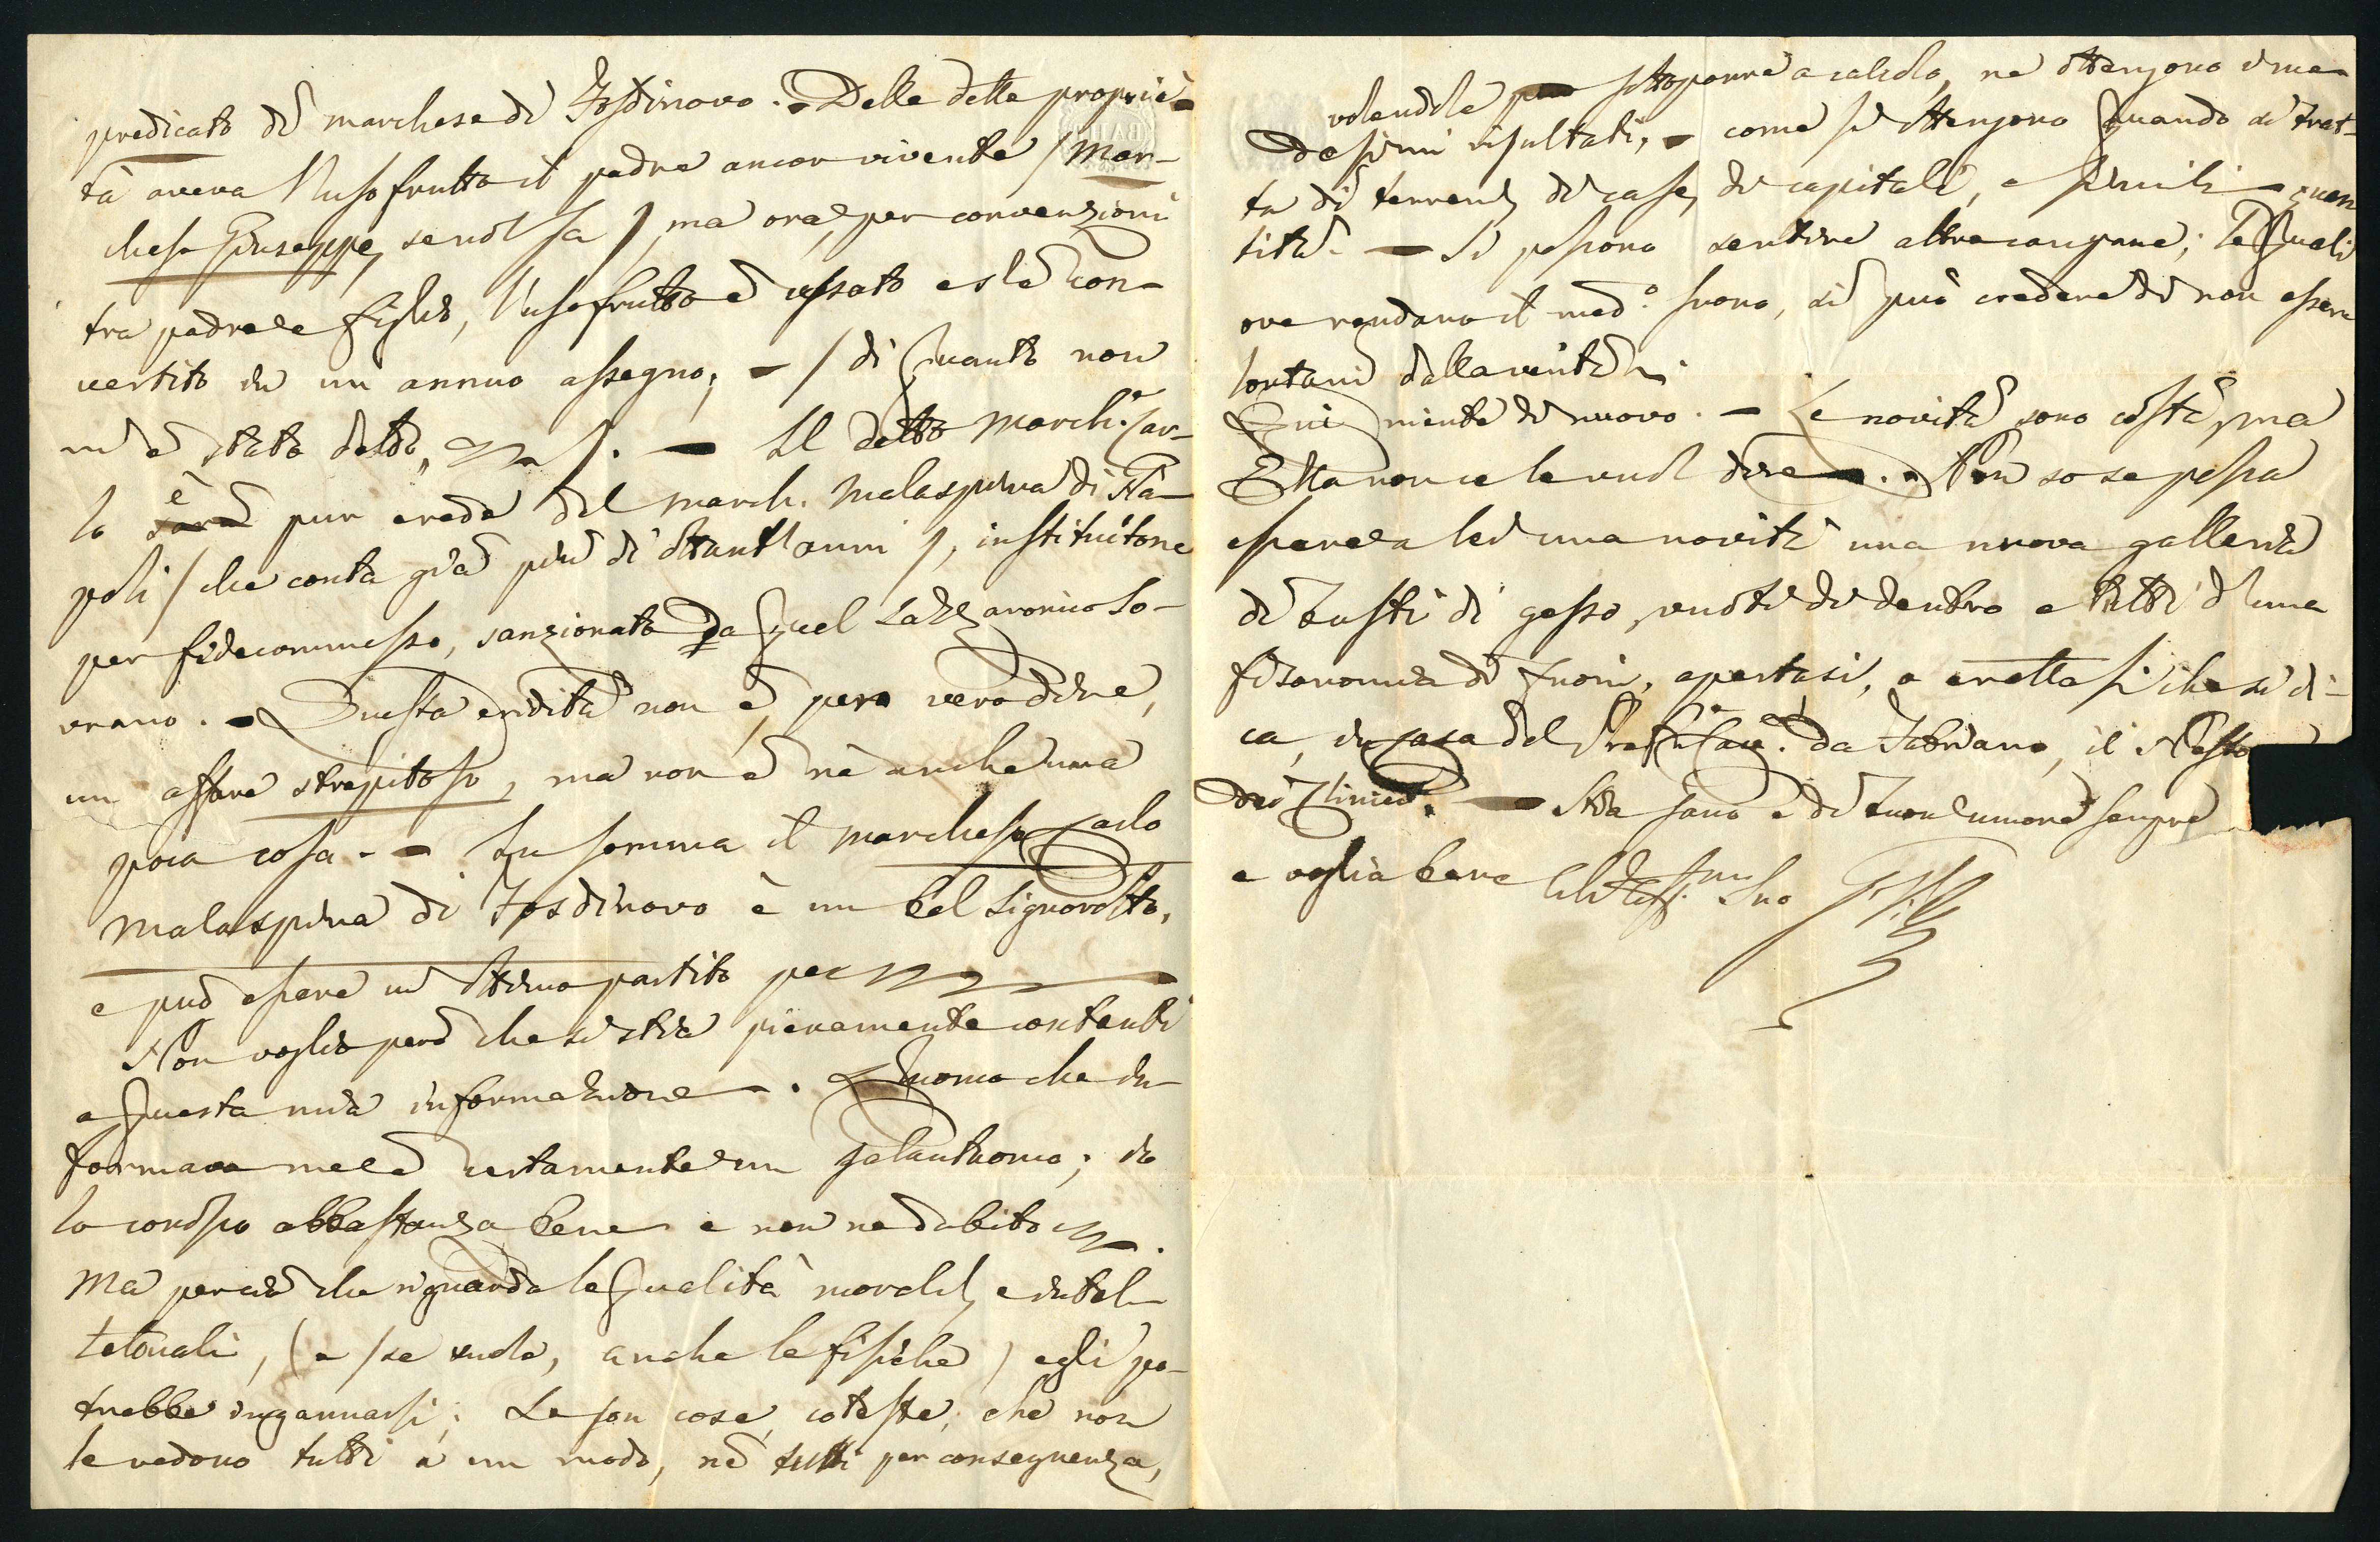 predicato di marchese di Fosdinovo. - Delle dette proprie-
tà aveva l'usofrutto il padre ancor vivente / Mar-
chese Giuseppe, se nol sa /, ma ora, per convenzioni
tra padre e figlio, l'usofrutto è cessato e s'è con-
vertito in un annuo assegno; - / di quanto non
m'è stato detto, /. - Il detto March.e Car-
lo è sarà pur erede del march. Malaspina di Na-
poli / che conta già più di ottant'anni /, instituitone
per fidecommesso, sanzionato da quel Lazzaronico So-
vrano. - Questa eredità non è, per vero dire,
un affare strepitoso, ma non è nè anche una
poca cosa. - In somma il marchese Carlo
Malaspina di Fosdinovo è un bel signorotto,
e può essere un ottimo partito per
Non voglio però che si stia pienamente contenti
a questa mia informazione. L'uomo che in-
formava me è certamente un galantuomo; io
lo conosco abbastanza bene e non ne dubito.
Ma per ciò che riguarda le qualità morali, e intel-
lettuali, (e / se vuole, anche le fisiche) egli po-
trebbe ingannarsi. Le son cose, coteste, che non
le vedono tutti a un modo, nè tutti per conseguenza,
volendole sottoporre a calcolo, ne ottengono i me-
desimi risultati, - come si ottengono quando si trat-
ta di terreni, di case, di capitali, e simili quan
tità. - Si possono sentire altre campane; le quali
ove rendano il med.o suono, si può credere di non essere
lontani dalla verità.
Qui niente di nuovo. - Le novità sono costà, ma
Ella non ce le vuol dire. - Non so se possa
essere a lei una novità una nuova galleria
di busti di gesso, vuoti di dentro e tutti d'una
fisonomia di fuori, apertasi, o erettasi che si di-
ca, in casa del Cav. da Fabriano, il Nesto
dei Clinici. - Stia sano e di buon umore sempre
e voglia bene Suo